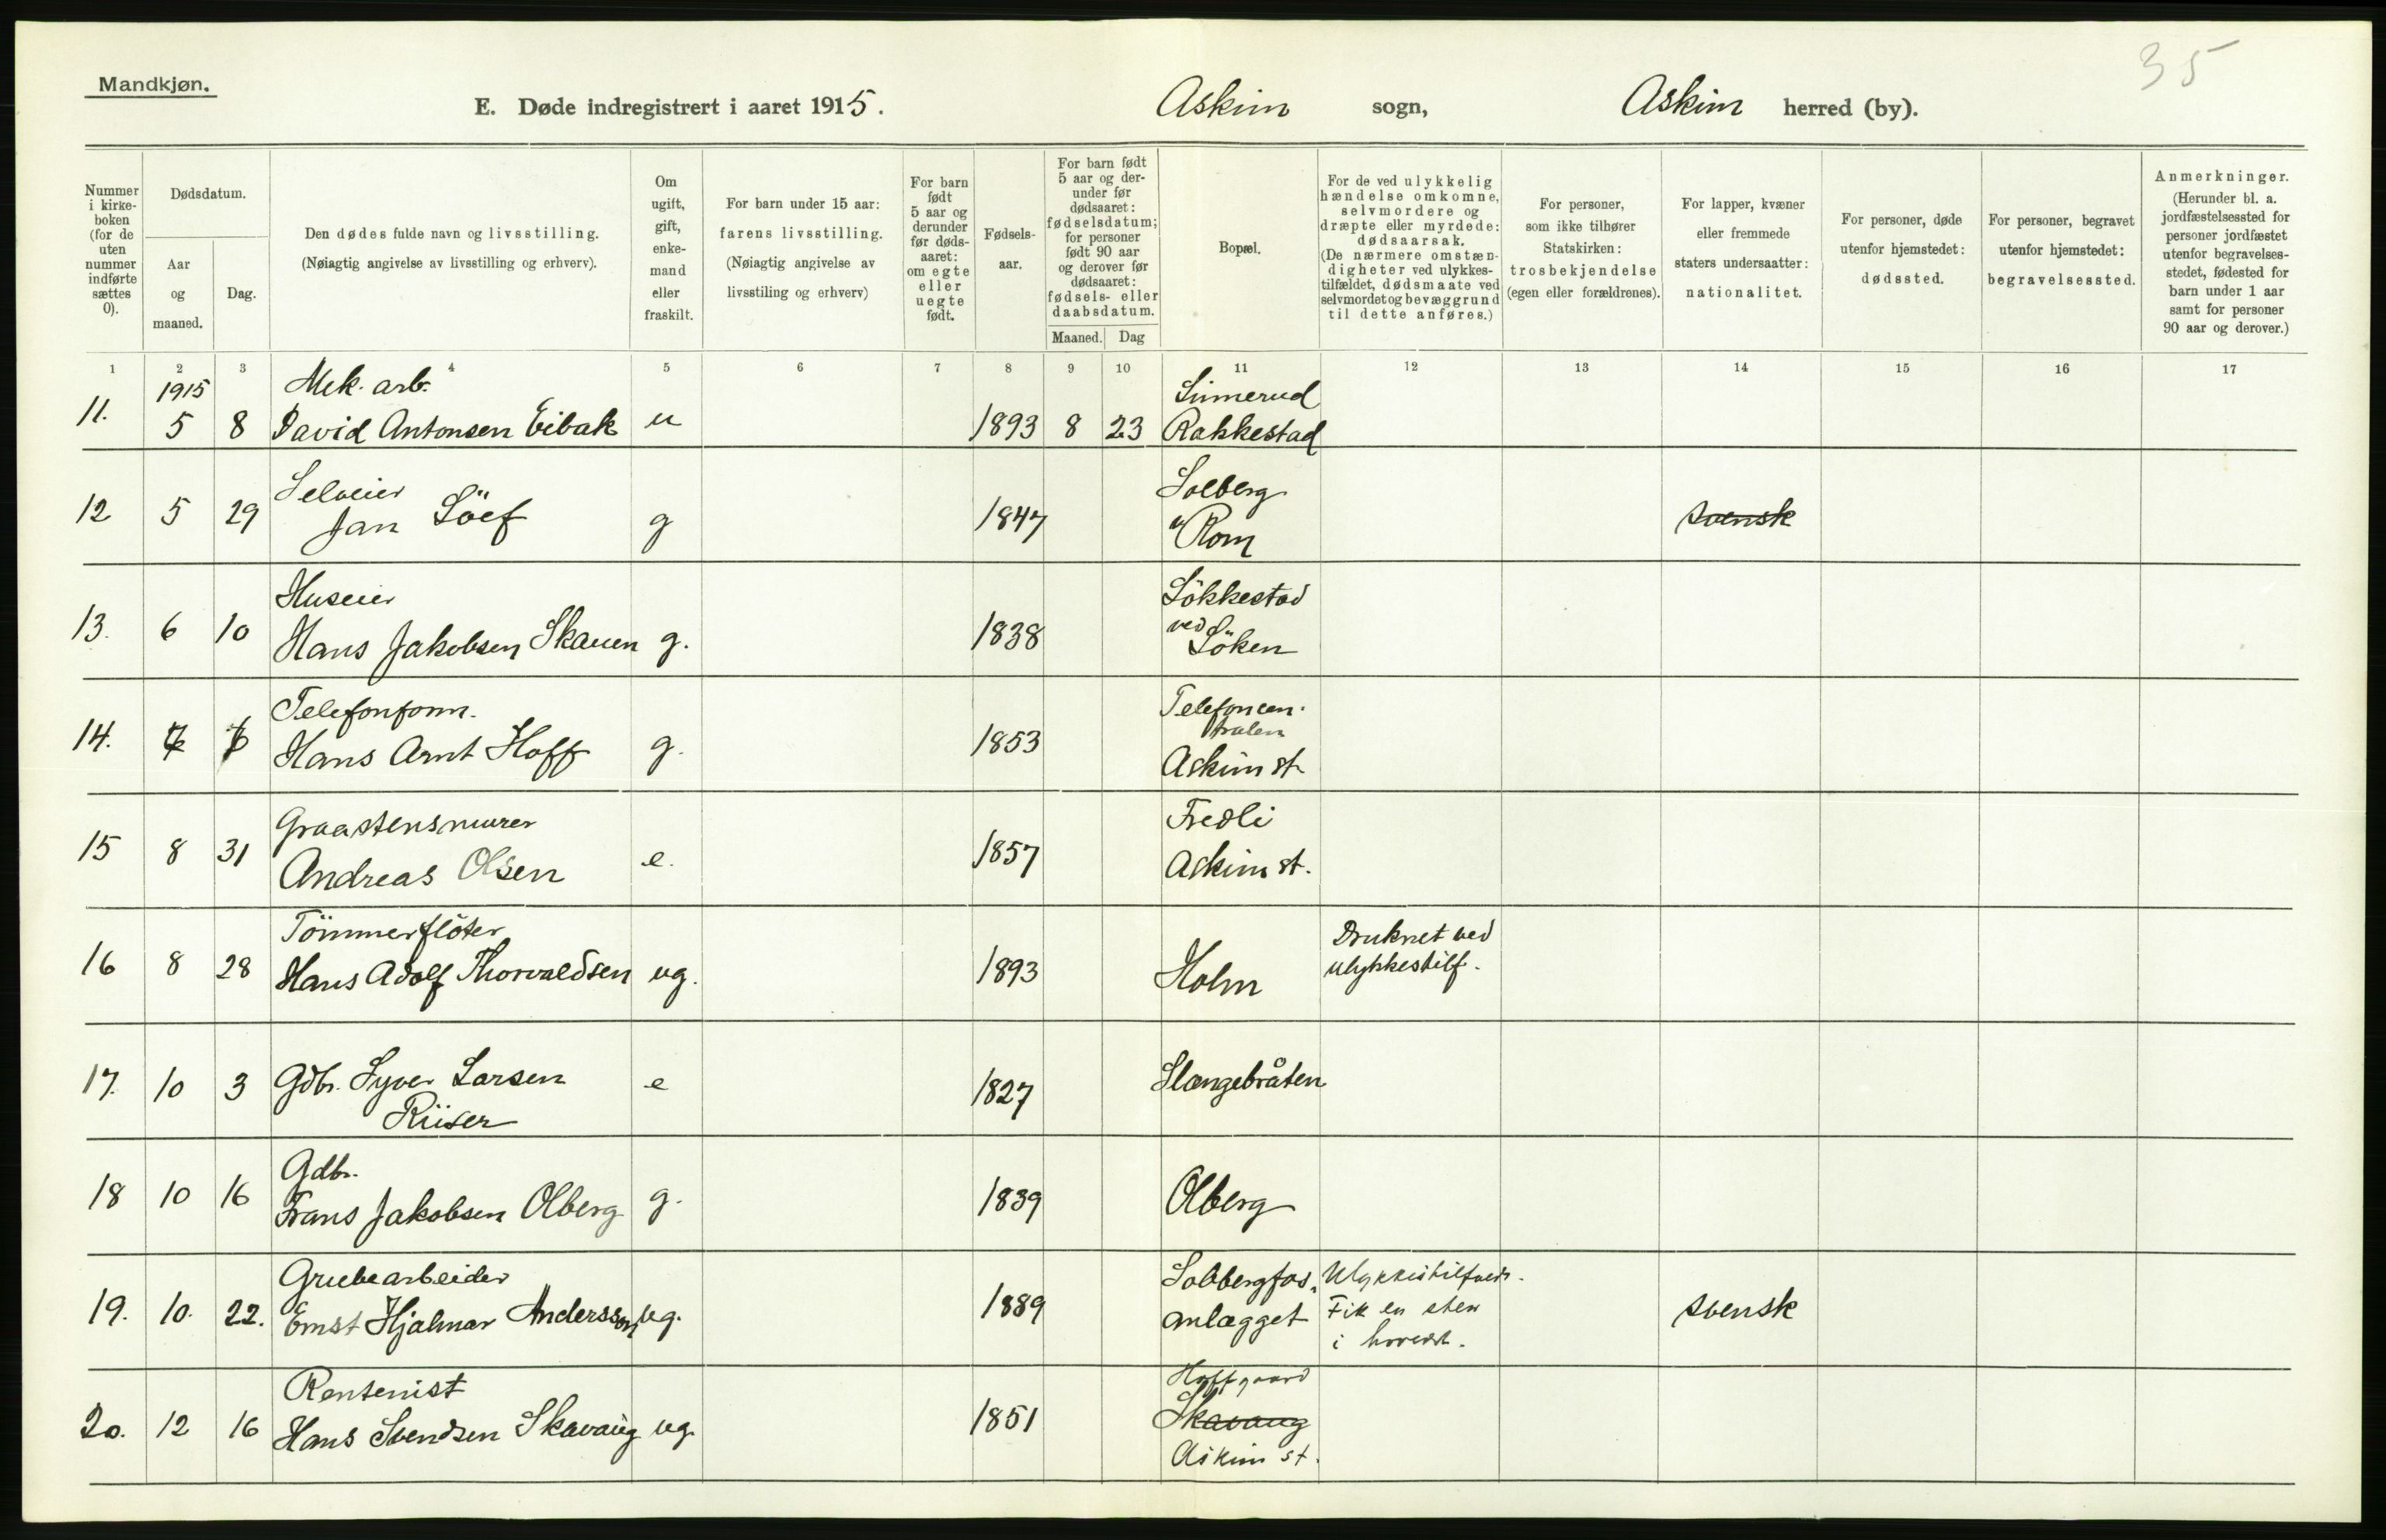 35
Mandkjøn.
E. Døde indregistrert i aaret 1915. Askim sogn, Askim herred (by).
Nummer i kirke- boken (for de uten nummer indførte sættes 0).
Dødsdatum.
Aar og maaned.
Dag.
Den dødes fulde navn og livsstilling. (Nøiagtig angivelse av livsstilling og erhverv).
Om ugift, gift, enke- mand eller fraskilt.
For barn under 15 aar: farens livsstilling. (Nøiagtig angivelse av livsstiling og erhverv)
For barn født 5 aar og derunder før døds- aaret: om egte eller uegte født.
Fødsels- aar.
For barn født 5 aar og der- under før dødsaaret: fødselsdatum; for personer født 90 aar og derover før dødsaaret: fødsels- eller daabsdatum.
Maaned. Dag
Bopæl.
For de ved ulykkelig hændelse omkomne, selvmordere og dræpte eller myrdede: dødsaarsak. (De nærmere omstæn- digheter ved ulykkes- tilfældet, dødsmaate ved selvmordet og bevæggrund til dette anføres.)
For personer, som ikke tilhører Statskirken: trosbekjendelse (egen eller forældrenes).
For lapper, kvæner eller fremmede staters undersaatter: nationalitet.
For personer, døde utenfor hjemstedet: dødssted.
For personer, begravet utenfor hjemstedet: begravelsessted.
Anmerkninger. (Herunder bl. a. jordfæstelsessted for personer jordfæstet utenfor begravelses- stedet, fødested for barn under 1 aar samt for personer 90 aar og derover.)
1 2 3 4 5 6 7 8 9 10 11 12 13 14 15 16 17
1915 Mek. arb. Linnerud
11. 5 8 David Antonsen Eibak u 1893 8 23 Rakkestad
Selveier Solberg
12 5 29 Jan Löef g 1847 Rom svensk
Huseier Lökkestad
13. 6 10 Hans Jakobsen Skauen g. 1838 ved Löken
Telefonform. Telefoncen-
tralen
14. Hans Arnt Hoff g. 1853 Askim st
Graastensmurer Fredli
15 8 31 Andreas Olsen e. 1857 Askim st.
Tömmerflöter Druknet ved
16 8 28 Hans Adolf Thorvaldsen ug. 1893 Holm ulykkestilf.
17. 10 3 Gdbr. Syver Larsen e 1827 Slangebråten
Riiser
Gdbr.
18 10 16 Frans Jakobsen Olberg g. 1839 Olberg
Grubearbeider Solbergfos- Ulykkestilfæde.
19. 10. 22. Ernst Hjalmar Andersson ug. 1889 anlægget Fik en sten svensk
i hovedet.
Rentenist Hoffgaard
20. 12 16 Hans Svendsen Skavaug ug. 1851 Skavaug
Askim st.